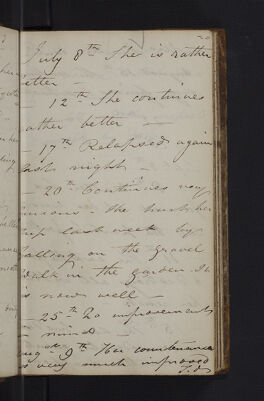 July 8th She is rather
etter —
— 12th She continues
ather better —
— 17th Relapsed again
last night —
— 20th Continues very
- she hurt her
hip last week by
alling on the gravel
walk in the garden
is now well —
— 25th No improvement
mind —
Aug 9th Her countenance
is very much improved